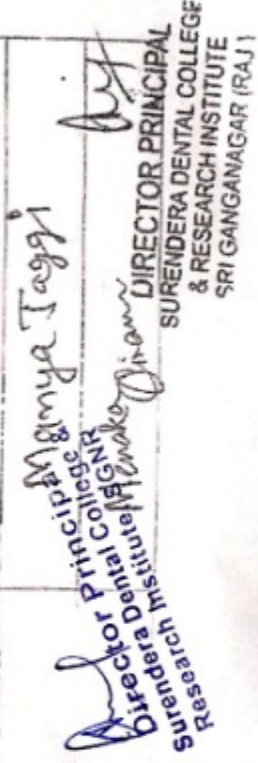 Mamya Jaggi
Menaka
Director Principal
Surendera Dental College &
Research Institute SGNR
DIRECTOR PRINCIPAL
SURENDERA DENTAL COLLEGE
& RESEARCH INSTITUTE
SRI GANGANAGAR (RAJ)